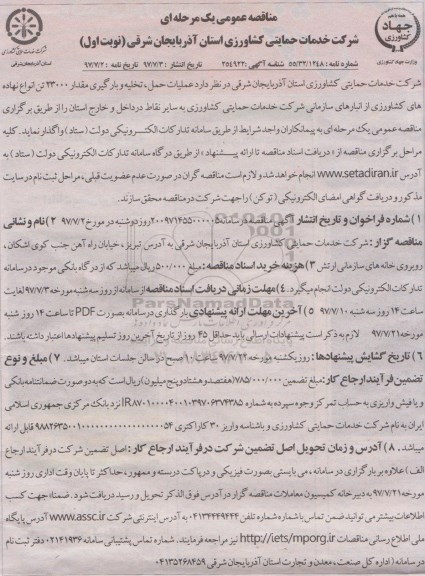 مناقصه عمومی یک مرحله ای
شرکت خدمات حمایتی کشاورزی استان آذربایجان شرقی (نوبت اول)
جهاد کشاورزی
وزارت جهاد کشاورزی
شماره نامه: ۵۵/۳۲/۱۲۴۸ شناسه آگهی: ۲۵۴۹۲۲ تاریخ انتشار: ۹۷/۷/۳ تاریخ نامه: ۹۷/۷/۲
شرکت خدمات حمایتی کشاورزی استان آذربایجان شرقی در نظر دارد عملیات حمل، تخلیه و بارگیری مقدار ۲۳۰۰۰ تن انواع نهاده
های کشاورزی از انبارهای سازمانی شرکت خدمات حمایتی کشاورزی به سایر نقاط درداخل و خارج استان را از طریق برگزاری
مناقصه عمومی یک مرحله ای به پیمانکاران واجد شرایط از طریق سامانه تدارکات الکترونیکی دولت (ستاد) واگذار نماید. کلیه
مراحل برگزاری مناقصه از «دریافت اسناد مناقصه تا ارائه پیشنهاد» از طریق درگاه سامانه تدارکات الکترونیکی دولت (ستاد) به
آدرس www.setadiran.ir انجام خواهد شد و لازم است مناقصه گران در صورت عدم عضویت قبلی، مراحل ثبت نام در سایت
مذکور و دریافت گواهی امضای الکترونیکی (توکن) را جهت شرکت در مناقصه محقق سازند.
۱) شماره فراخوان و تاریخ انتشار آگهی مناقصه در سامانه ۲۰۰۹۷۱۴۵۵۰۰۰۰۰۵ روز دوشنبه در مورخ ۹۷/۷/۲ ۲) نام و نشانی
مناقصه گزار: شرکت خدمات حمایتی کشاورزی استان آذربایجان شرقی به آدرس تبریز، خیابان راه آهن جنب کوی اشکان،
روبروی خانه های سازمانی ارتش ۳) هزینه خرید اسناد مناقصه: مبلغ ۵۰۰/۰۰۰ ریال میباشد که از درگاه بانکی موجود در سامانه
تدارکات الکترونیکی دولت انجام میگیرد. ۴) مهلت زمانی دریافت اسناد مناقصه از سامانه از روز سه شنبه مورخه ۹۷/۷/۳ لغایت
ساعت ۱۴ روز سه شنبه ۹۷/۷/۱۰ ۵) آخرین مهلت ارائه پیشنهادی بارگذاری در سامانه بصورت PDF تا ساعت ۱۴ روز شنبه
مورخه ۹۷/۷/۲۱ لازم به ذکر است پیشنهادات ارسالی باید حداقل ۴۵ روز از تاریخ آخرین روز تسلیم پیشنهادها اعتبار داشته باشند.
۶) تاریخ گشایش پیشنهادها: روز یکشنبه مورخه ۹۷/۷/۲۲ ساعت ۱۰ صبح در سالن جلسات استان میباشد. ۷) مبلغ و نوع
تضمین فرآیند ارجاع کار: مبلغ تضمین ۷۸۵/۰۰۰/۰۰۰ (هفتصد و هشتاد و پنج میلیون) ریال است که به دو صورت ضمانتنامه بانکی
و یا فیش واریزی به حساب تمرکز وجوه سپرده به شماره نزد بانک مرکزی جمهوری اسلامی
ایران به نام شرکت خدمات حمایتی کشاورزی و با شناسه واریز ۳۰ کاراکتری قابل ارائه
میباشد. ۸) آدرس و زمان تحویل اصل تضمین شرکت در فرآیند ارجاع کار: اصل تضمین شرکت در فرآیند ارجاع کار
الف) علاوه بر بارگزاری در سامانه، می بایستی بصورت فیزیکی و در پاکت دربسته و ممهور، حداکثر تا پایان وقت اداری روز شنبه
مورخه ۹۷/۷/۲۱ به دبیرخانه کمیسیون معاملات مناقصه گزار در آدرس فوق الذکر تحویل و رسید دریافت شود. ضمنا: جهت کسب
اطلاعات بیشتر می توانید ضمن تماس با شماره شماره تلفن ۰۴۱۳۴۴۴۹۴۴۴ به آدرس اینترنتی شرکت www.assc.ir و آدرس پایگاه
ملی اطلاع رسانی مناقصات http://iets/mporg.ir نیز مراجعه فرمایند. شماره تماس پشتیبانی سامانه ۰۲۱۴۱۹۳۶ دفتر ثبت نام
در سامانه (اداره کل صنعت، معدن و تجارت استان آذربایجان شرقی ۰۴۱۳۵۲۶۸۴۵۹